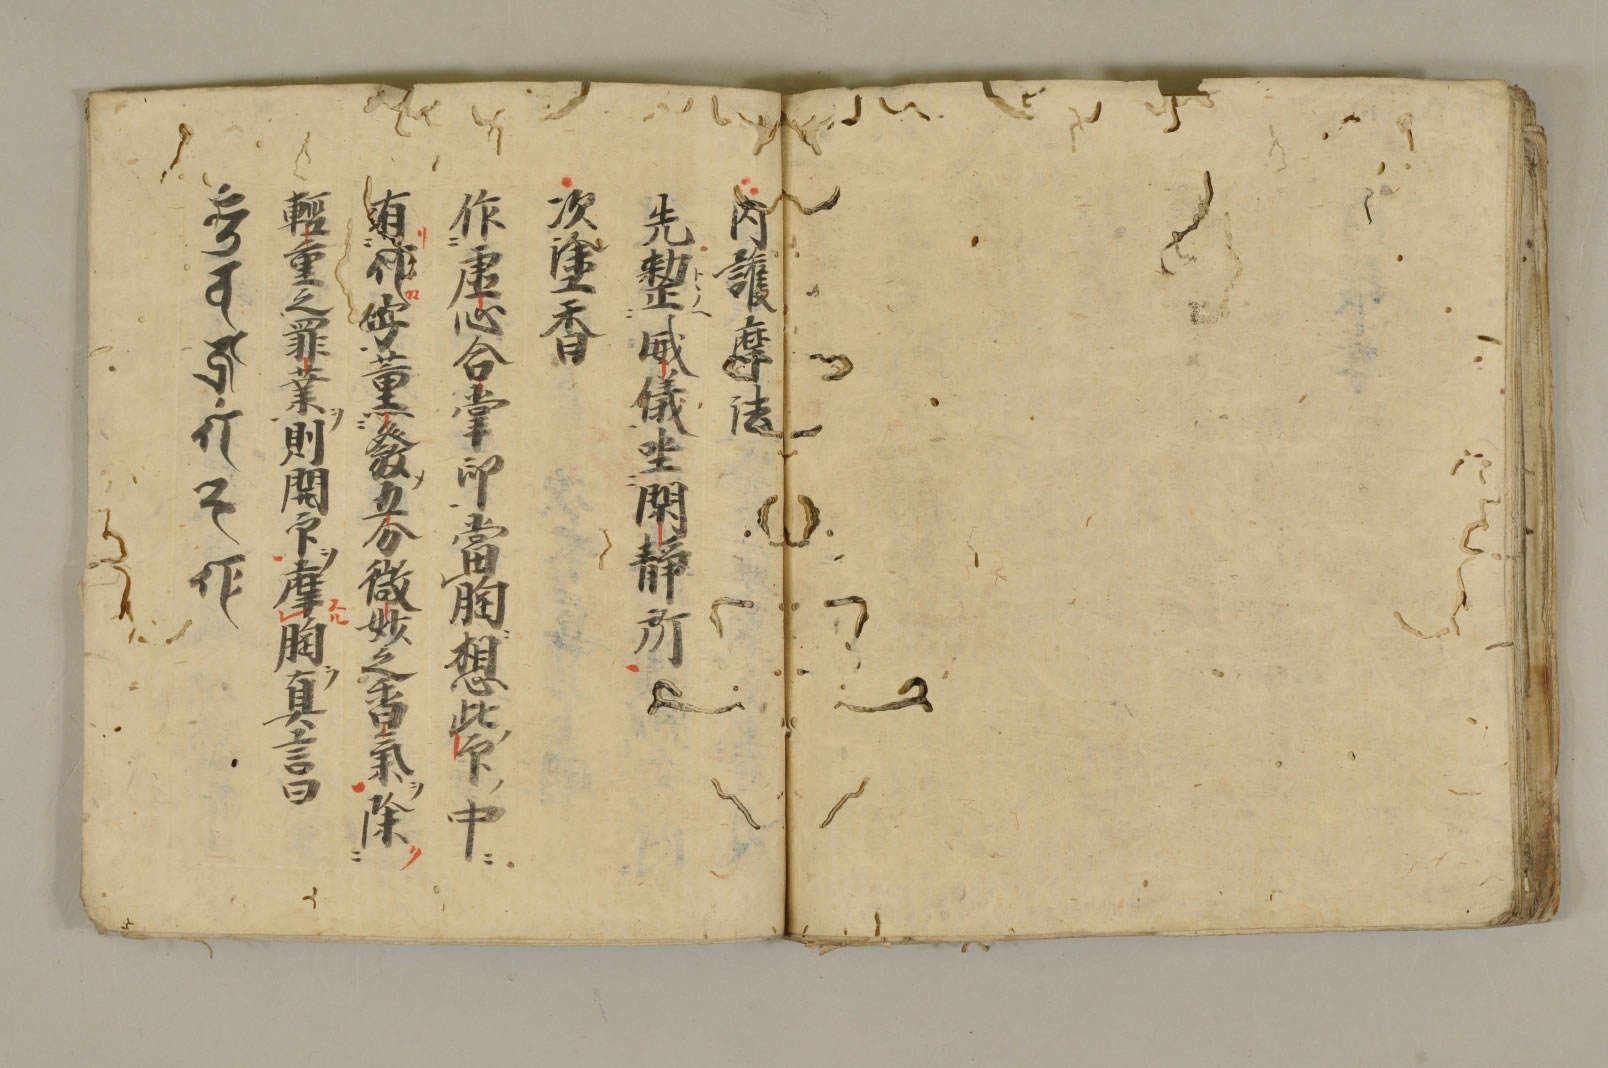 内護摩法
先整威儀坐閑静所
次塗香
作虚心合掌印當胸想此印中
有字薫發五分微妙之香氣除
輕重之罪業則開印摩胸真言曰